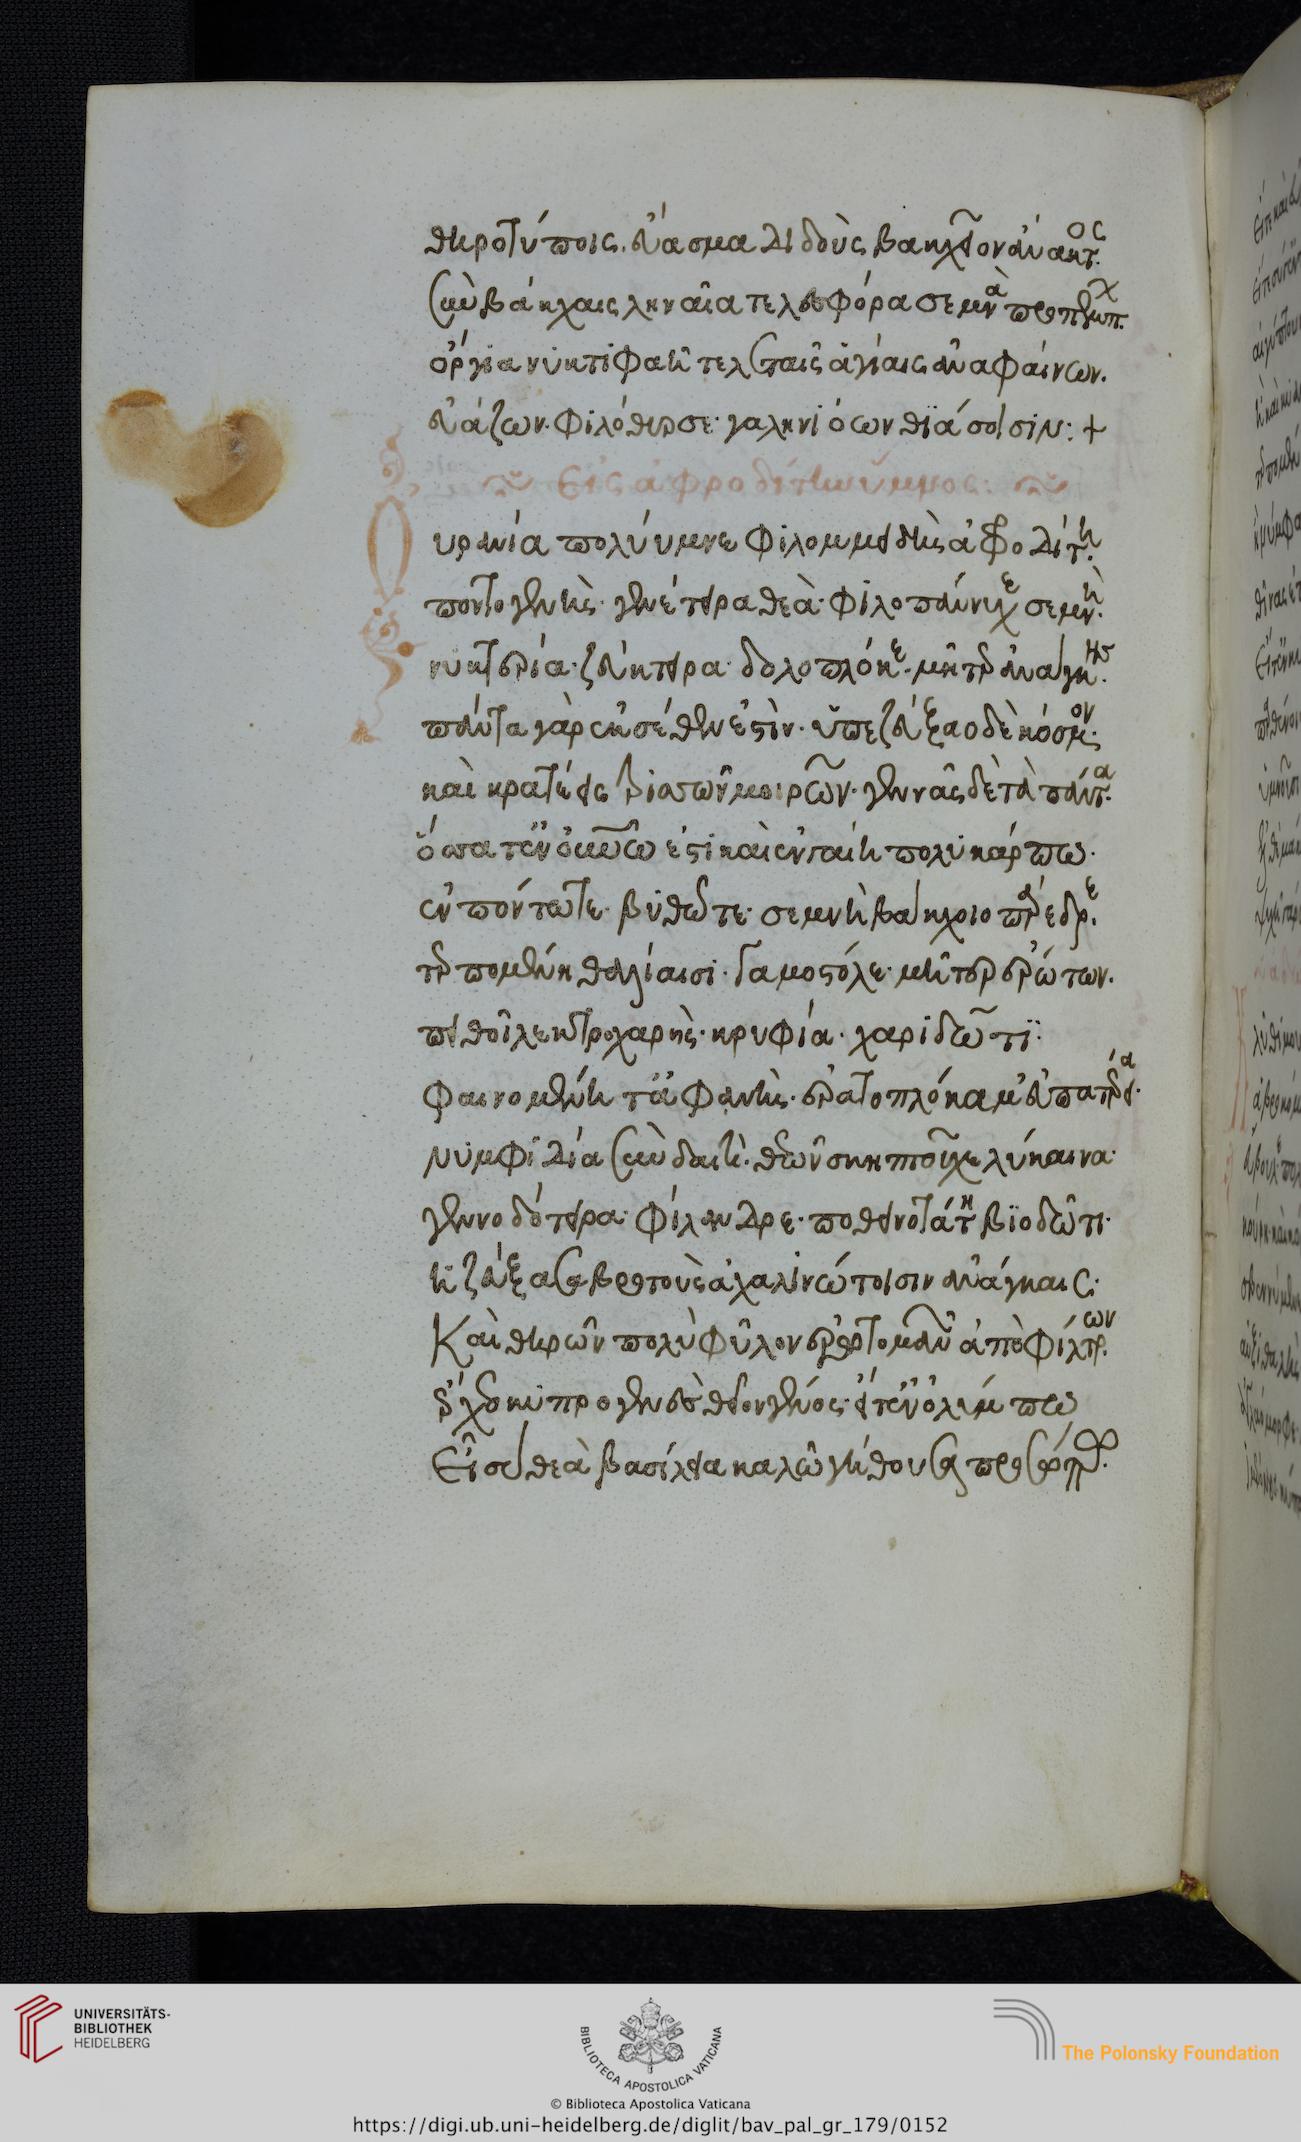 θηροτύποις. εὔασμα διδοὺς βακχεῖον ἄνακτος.
σὺν βάκχαις ληναῖα τελεσφόρα σεμνὰ προπέμπων.
ὄργϊα νυκτιφαῆ τελεταῖς ἁγίαις ἀναφαίνων.
εὐάζων. φιλόθυρσε· γαληνιόων θϊάσοισιν: +
Εἰς ἀφροδίτην ὕμνος:
Ουρανία πολύυμνε φιλομμειδὴς ἀφροδίτη.
ποντογενὴς. γενέτειρα θεὰ. φιλοπάννυχε σεμνὴ.
νυκτερία. ζεύκτειρα. δολοπλόκε. μῆτερ ἀνάγκης.
πάντα γὰρ ἐκ σέθεν ἐστὶν. ὑπεζεύξαο δὲ κόσμον.
καὶ κρατέεις τρισσῶν μοιρῶν. γεννᾶς δὲ τὰ πάντα.
ὅσσα τ' ἐν οὐρανῶ ἐστι καὶ ἐν γαίη πολυκάρπω.
ἐν πόντω τε. βυθῶ τε. σεμνὴ βάκχοιο πάρεδρε.
τερπομένη θαλίαισι. γαμοστόλε. μῆτερ ἐρώτων.
πειθοῖ λεκτροχαρὴς. κρυφία. χαριδῶτϊ.
φαινομένη τ' ἀφανὴς. ἐρατοπλόκαμ' εὐπατέρεια.
νυμφιδία σὺνδαιτὶ. θεῶν σκηπτοῦχε λύκαινα.
γεννοδότειρα. φίλανδρε. ποθεινοτάτη βϊοδῶτι.
ἡ ζεύξασα βροτοὺς ἀχαλινώτοισιν ἀνάγκαις.
Καὶ θηρῶν πολὺ φῦλον ἐρωτομανῶν ἀπὸ φίλτρων.
ἔρχεο κυπρογενὲς θεῖον γένος. εἴτ' ἐν ὀλύμπω
Εἶ σὺ θεὰ βασίλεια καλῶ γήθουσα προσώπω.
UNIVERSITÄTS-
BIBLIOTHEK
HEIDELBERG
BIBLIOTECA APOSTOLICA VATICANA
The Polonsky Foundation
© Biblioteca Apostolica Vaticana
https://digi.ub.uni-heidelberg.de/diglit/bav_pal_gr_179/0152